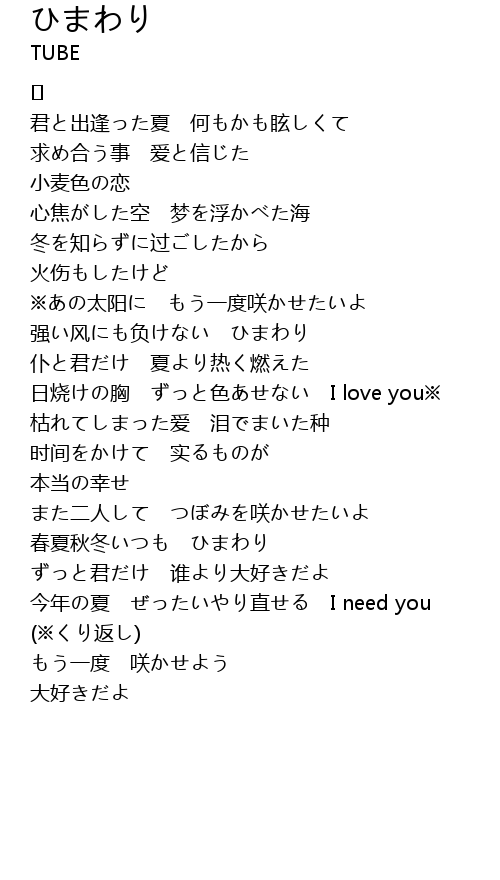 ひまわり
TUBE
[]
君と出逢った夏　何もかも眩しくて
求め合う事　爱と信じた
小麦色の恋
心焦がした空　梦を浮かべた海
冬を知らずに过ごしたから
火伤もしたけど
※あの太阳に　もう一度咲かせたいよ
强い风にも负けない　ひまわり
仆と君だけ　夏より热く燃えた
日烧けの胸　ずっと色あせない　I love you※
枯れてしまった爱　泪でまいた种
时间をかけて　实るものが
本当の幸せ
また二人して　つぼみを咲かせたいよ
春夏秋冬いつも　ひまわり
ずっと君だけ　谁より大好きだよ
今年の夏　ぜったいやり直せる　I need you
(※くり返し)
もう一度　咲かせよう
大好きだよ